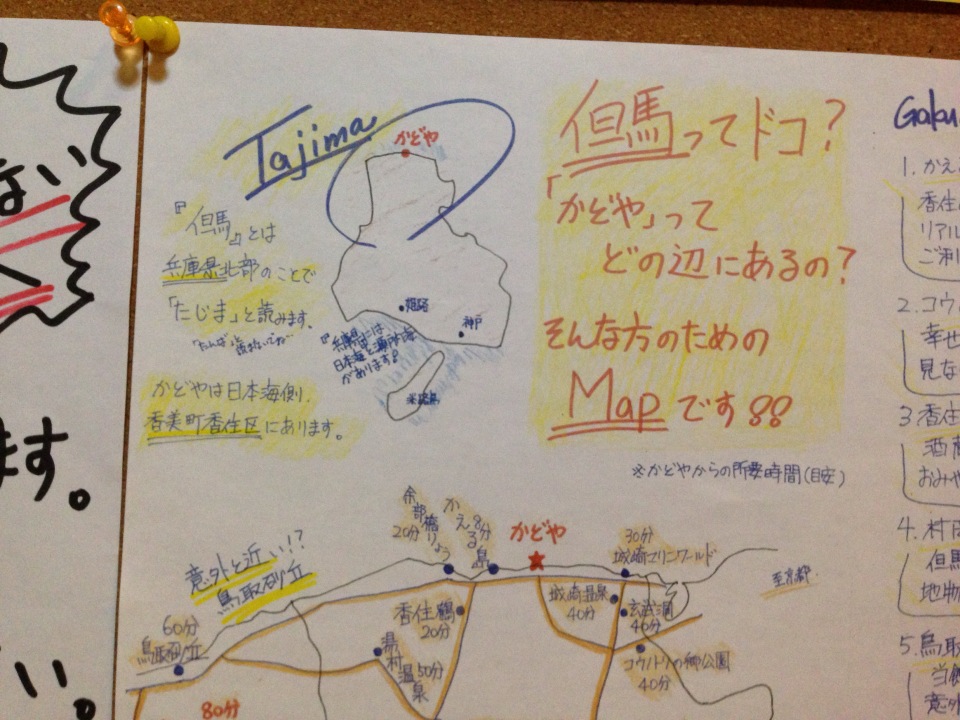 Tajima
かどや
『但馬』とは
兵庫県北部のことで
「たじま」と読みます。
かどやは日本海側、
香美町香住区にあります。
姫路
神戸
日本海と瀬戸内海
があります!
淡路島
但馬ってドコ?
「かどや」って
どの辺にあるの?
そんな方のための
Mapです!!
※かどやからの所要時間(目安)
余部橋りょう
20分
かえる島
8分
かどや
30分
城崎マリンワールド
至京都
意外と近い!?
鳥取砂丘
60分
鳥取砂丘
香住鶴
20分
湯村温泉
50分
城崎温泉
40分
玄武洞
40分
コウノトリの郷公園
40分
80分
ない
ます。
い。
Gaku
1. かえ
香住
リアル
ご利
2. コウ
幸せ
見な
3 香住
酒蔵
おみや
4. 村岡
但馬
地物
5. 鳥取
当館
意外